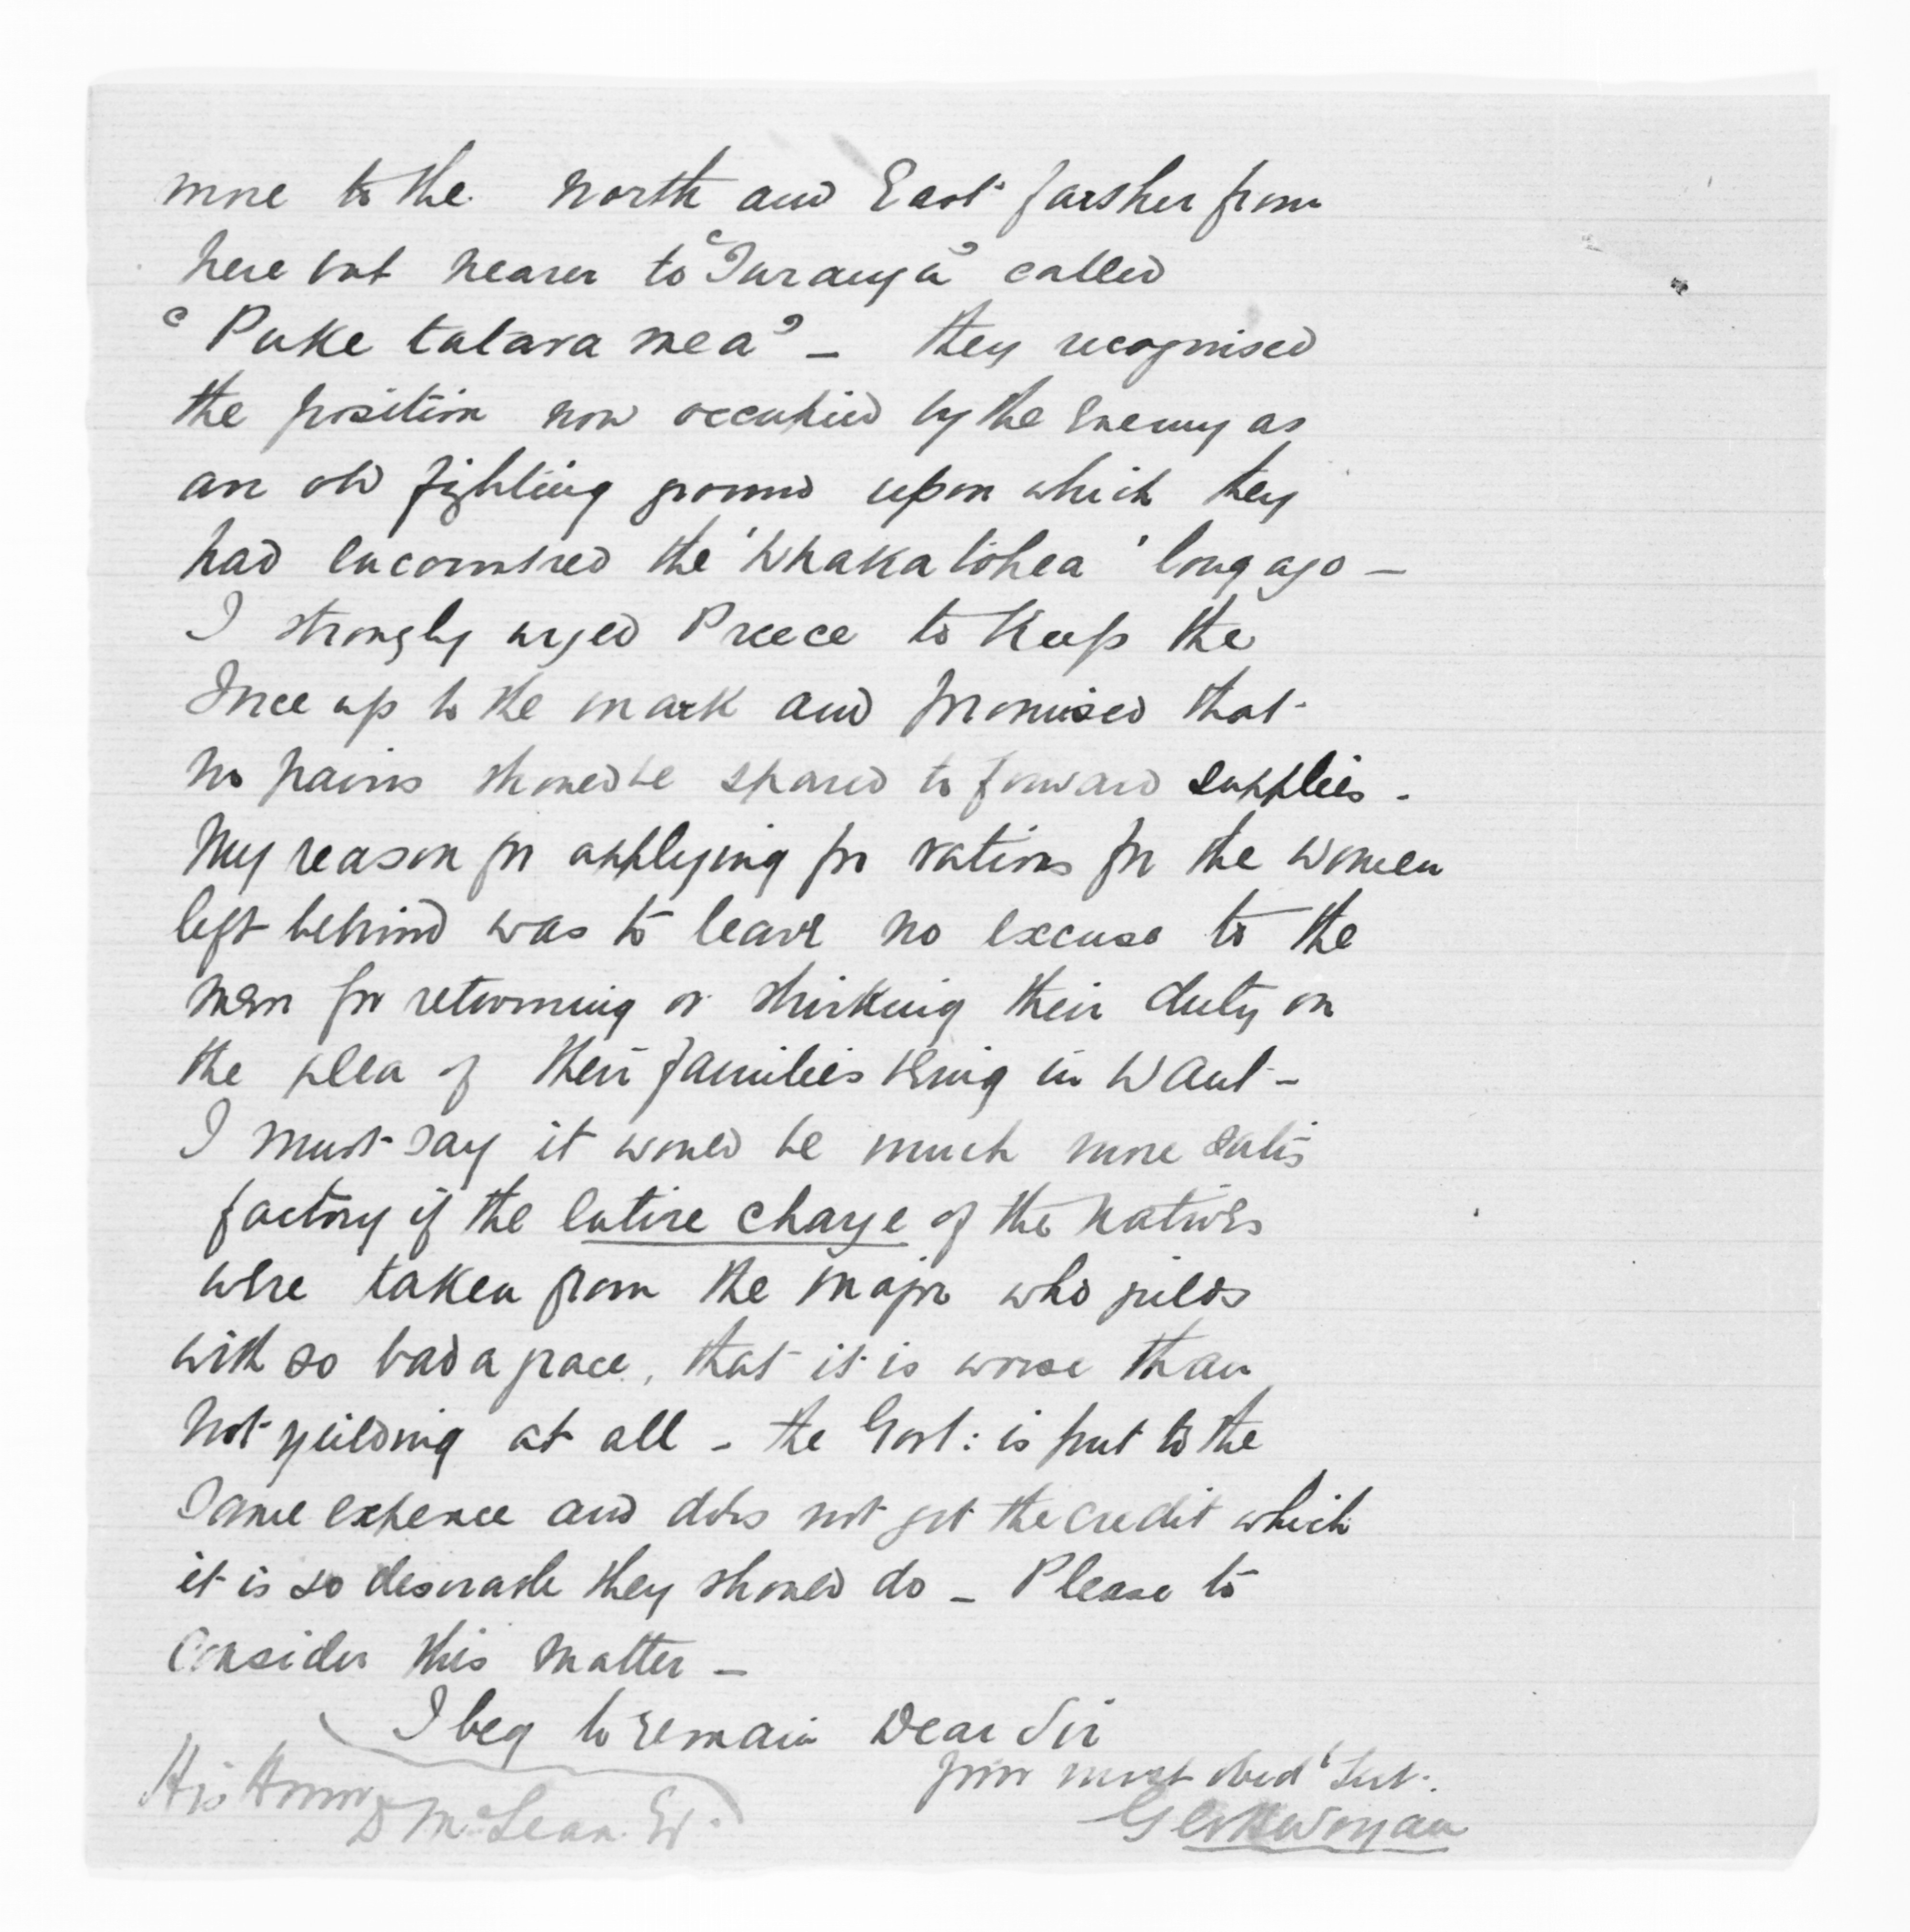 more to the north and East farther from
here but nearer to "Turanga" called
"Puke tatara mea" – they recognised
the position now occupied by the Enemy as
an old fighting ground upon which they
had encountred the 'Whakatohea' long ago –
I strongly urged Preece to keep the
Force up to the mark and promised that
no pains should be spared to forward supplies.
My reason for applying for rations for the women
left behind was to leave no excuse to the
men for returning or shirking their duty on
the plea of their families being in want –
I must say it would be much more satis
factory if the entire charge of the Natives
were taken from the Major who yields
with so bad a grace, that it is worse than
not yeilding at all – the Govt: is put to the
same expence and does not get the credit which
it is so desirable they should do – Please to
consider this matter –
I beg to remain Dear Sir
your most obed Sert.
His Honor
D McLean Er.